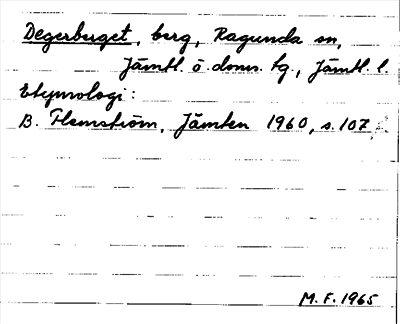 Degerberget, berg, Ragunda sn,
Jämtl. ö. doms. tg., Jämtl. l.
Etymologi:
B. Flemström, Jämten 1960, s. 107.
M. F. 1965